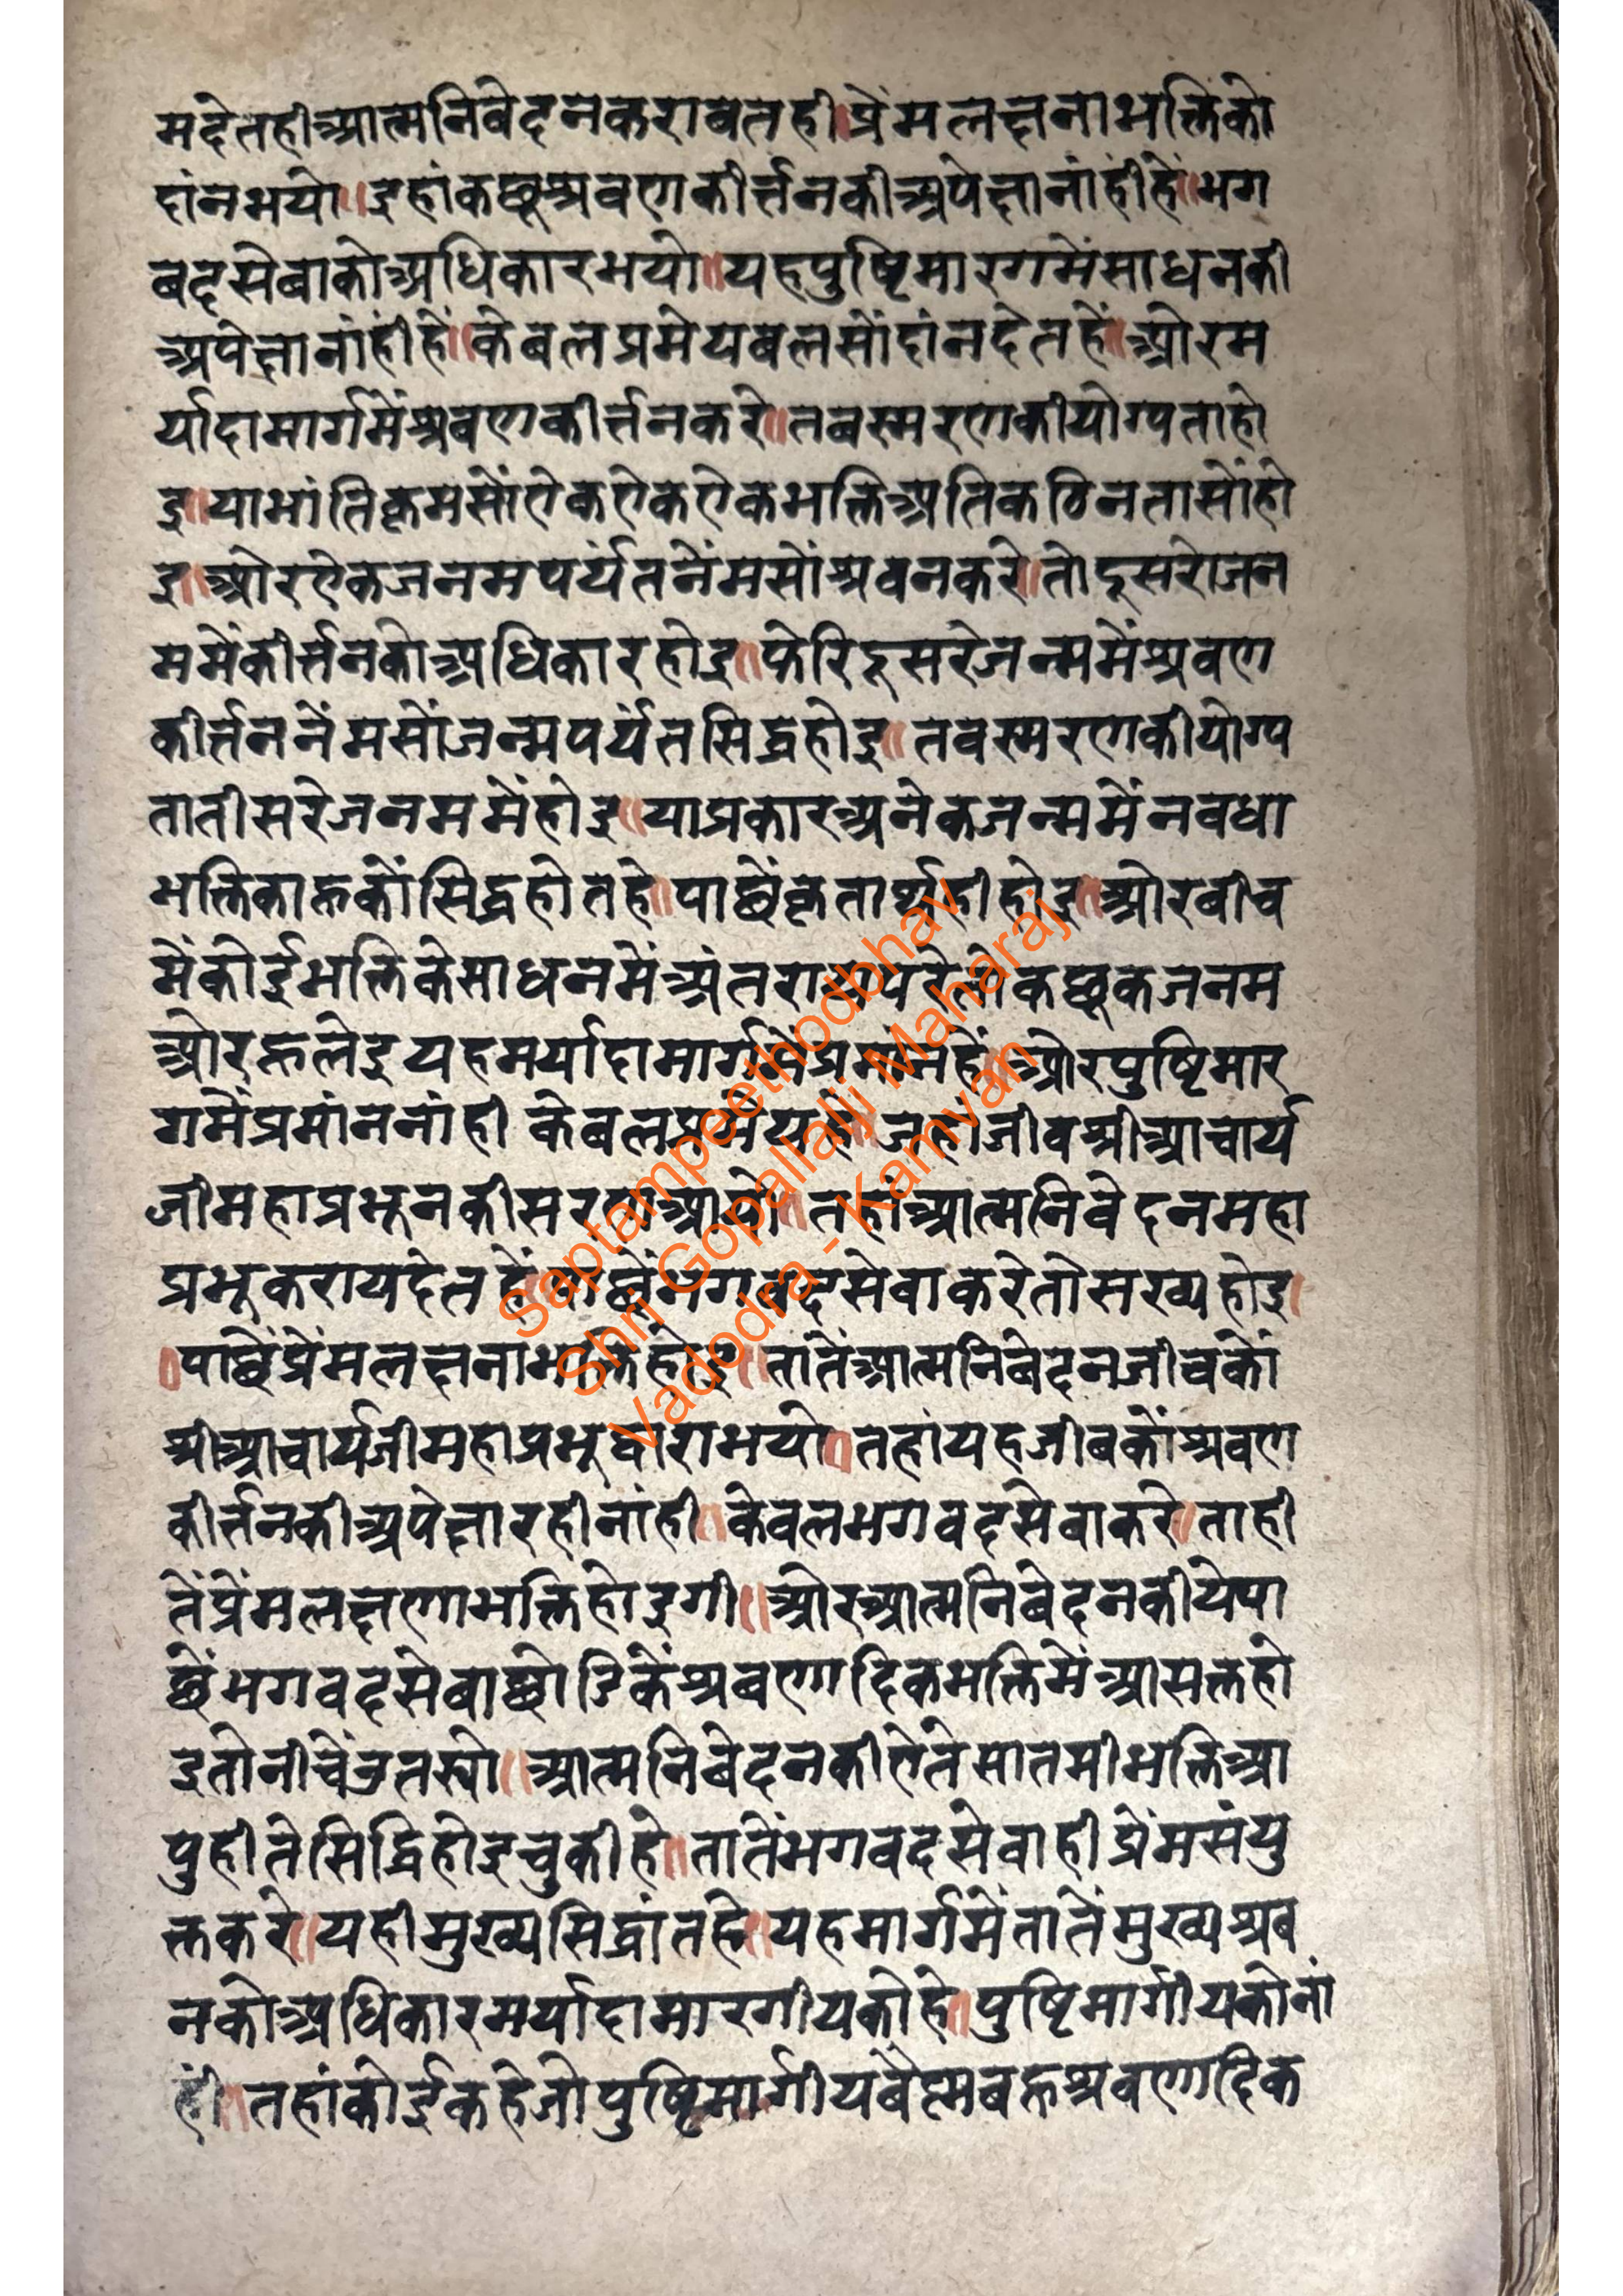 मदेतहीआत्मनिवेदनकरावतही॥प्रेंमलक्षनाभक्तिको
दांनभयो॥इहांकछूश्रवणकीर्त्तनकीअपेक्षानांहीहें॥भग
बदसेबाकोअधिकारभयो॥यहपुष्टिमारगमेंसाधनकी
अपेक्षानांहींहें॥केबलप्रमेयबलसोंदांनदेतहें॥ओरम
र्यादामार्गमेंश्रबणकीर्त्तनकरे॥तबस्मरणकीयोग्यताहो
इ॥याभांतिक्रमसोंऐकऐकऐकभक्तिअतिकठिनतासोंहो
इ॥ओरऐकजनमपर्यंतनेंमसोंश्रवनकरे॥तोदूसरोजन
ममेंकीर्त्तनकोअधिकारहोइ॥फेरिदूसरेजन्ममेंश्रवण
कीर्त्तननेंमसोंजन्मपर्यंतसिद्धहोइ॥तवस्मरणकीयोग्य
तातीसरेजनममेंहोइ॥याप्रकारअनेकजन्ममेंनवधा
भक्तिकाहूकोंसिद्धहोतहे॥पाछेंकृतार्थहीहोइ॥ओरबीच
मेंकोईभक्तिकेसाधनमेंअंतरायपरेतोकछूकजनम
ओरहूलेइयहमर्यादामार्गमेंप्रमांनहें॥ओरपुष्टिमार
गमेंप्रमांननांही केबलप्रमेयहें॥जहांजीवश्रीआचार्य
जीमहाप्रभूनकीसरनआयो॥तहांआत्मनिवेदनमहा
प्रभूकरायदेतहें॥पाछेंभगबदसेवाकरेतोसख्यहोइ॥
पाछेंप्रेंमलक्षनाभक्तिहोइ॥तातेंआत्मनिबेदनजीवकों
श्रीआचार्यजीमहाप्रभूद्वाराभयो॥तहांयहजीबकोंश्रवण
कीर्त्तनकीअपेक्षारहीनांही॥केवलभगवदसेबाकरे॥ताही
तेंप्रेंमलक्षणाभक्तिहोइगी॥ओरआत्मनिबेदनकीयेपा
छेंभगवदसेबाछोडिकेंश्रबणादिकभक्तिमेंआसक्तहो
इतोनीचेंउतर्‍यो॥आत्मनिबेदनकीऐतेसातमीभक्तिआ
पुहीतेसिद्धिहोइचुकीहे॥तातेंभगबदसेवाहीप्रेंमसंयु
क्तकरे॥यहीमुख्यसिद्धांतहे॥यहमार्गमेंतातेंमुख्यश्रब
नकोअधिकारमर्यादामारगीयकोहे॥पुष्टिमार्गीयकोनां
हीं॥तहांकोईकहेजोपुष्टिमार्गीयबैष्णबहूश्रवणादिक
Saptampeethodbhav
Shri Gopallalji Maharaj
Vadodra - Kamvan